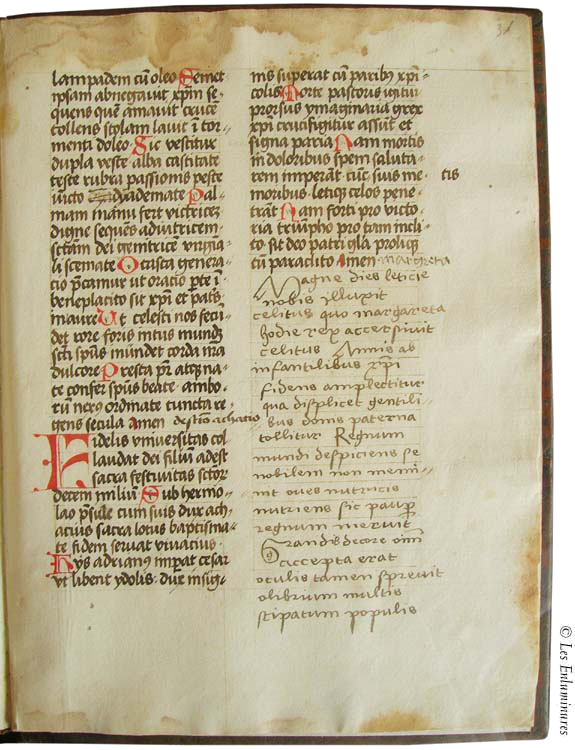 31
lampadem cū oleo Semet
ipsam abnegavit xpm se-
quens quē amavit crucē
tollens stolam lavit ī tor-
menti doleo Sic vestitur
dupla veste alba castitate
teste rubra passionis peste
victo dyademate Pal-
mam manu fert victricez
digne sequēs adiutricem
sctam dei genitricē virginā-
li scemate O casta genera-
cio pcamur ut oracio pte ī
beneplacito sit xpi et patris
maure Ut celesti nos fecū-
det rore foris intus mundz
scti spūs mundet corda ma
dulcore Presta pr atqz na-
te confer spūs beate ambo-
rū nexus ordinate cuncta re-
gens secula Amen de scō achacio
Fidelis universitas col
laudat dei filiū adest
sacra festivitas sctor
decem miliū Sub hermo-
lao psule cum suis dux ach-
acius sacra lotus baptisma-
te fidem servat vivacius
Hys adrianus impat cesar
ut libent ydolis due insig-
nis superat cū paribus xpi-
colis Morte pastoris igitur
prorsus ymaginaria grex
xpi crucifigitur assunt et
signa paria Nam mortis
in doloribus spem saluta-
rem imperāt cūc suis me- tis
moribus letiqz celos pene-
trāt Nam forti pro victo-
ria triūpho pro tam incli-
to sit deo patri gla proliqz
cū paraclito Amen margreta
Magne dies leticie
nobis illuxit
celitus quo margareta
hodie rex accersivit
celitus Annis ab
infantilibus xpi
fidens amplectitur
qua displicet gentili-
bus domus paterna
tollitur Regnum
mundi despiciens se
nobilem non memi-
nit oves nutricis
nutriens sic paup
regnum meruit
Grandis decore omni
accepta erat
oculis tamen sprevit
olibrium multis
stipatum populis
© Les Enluminures